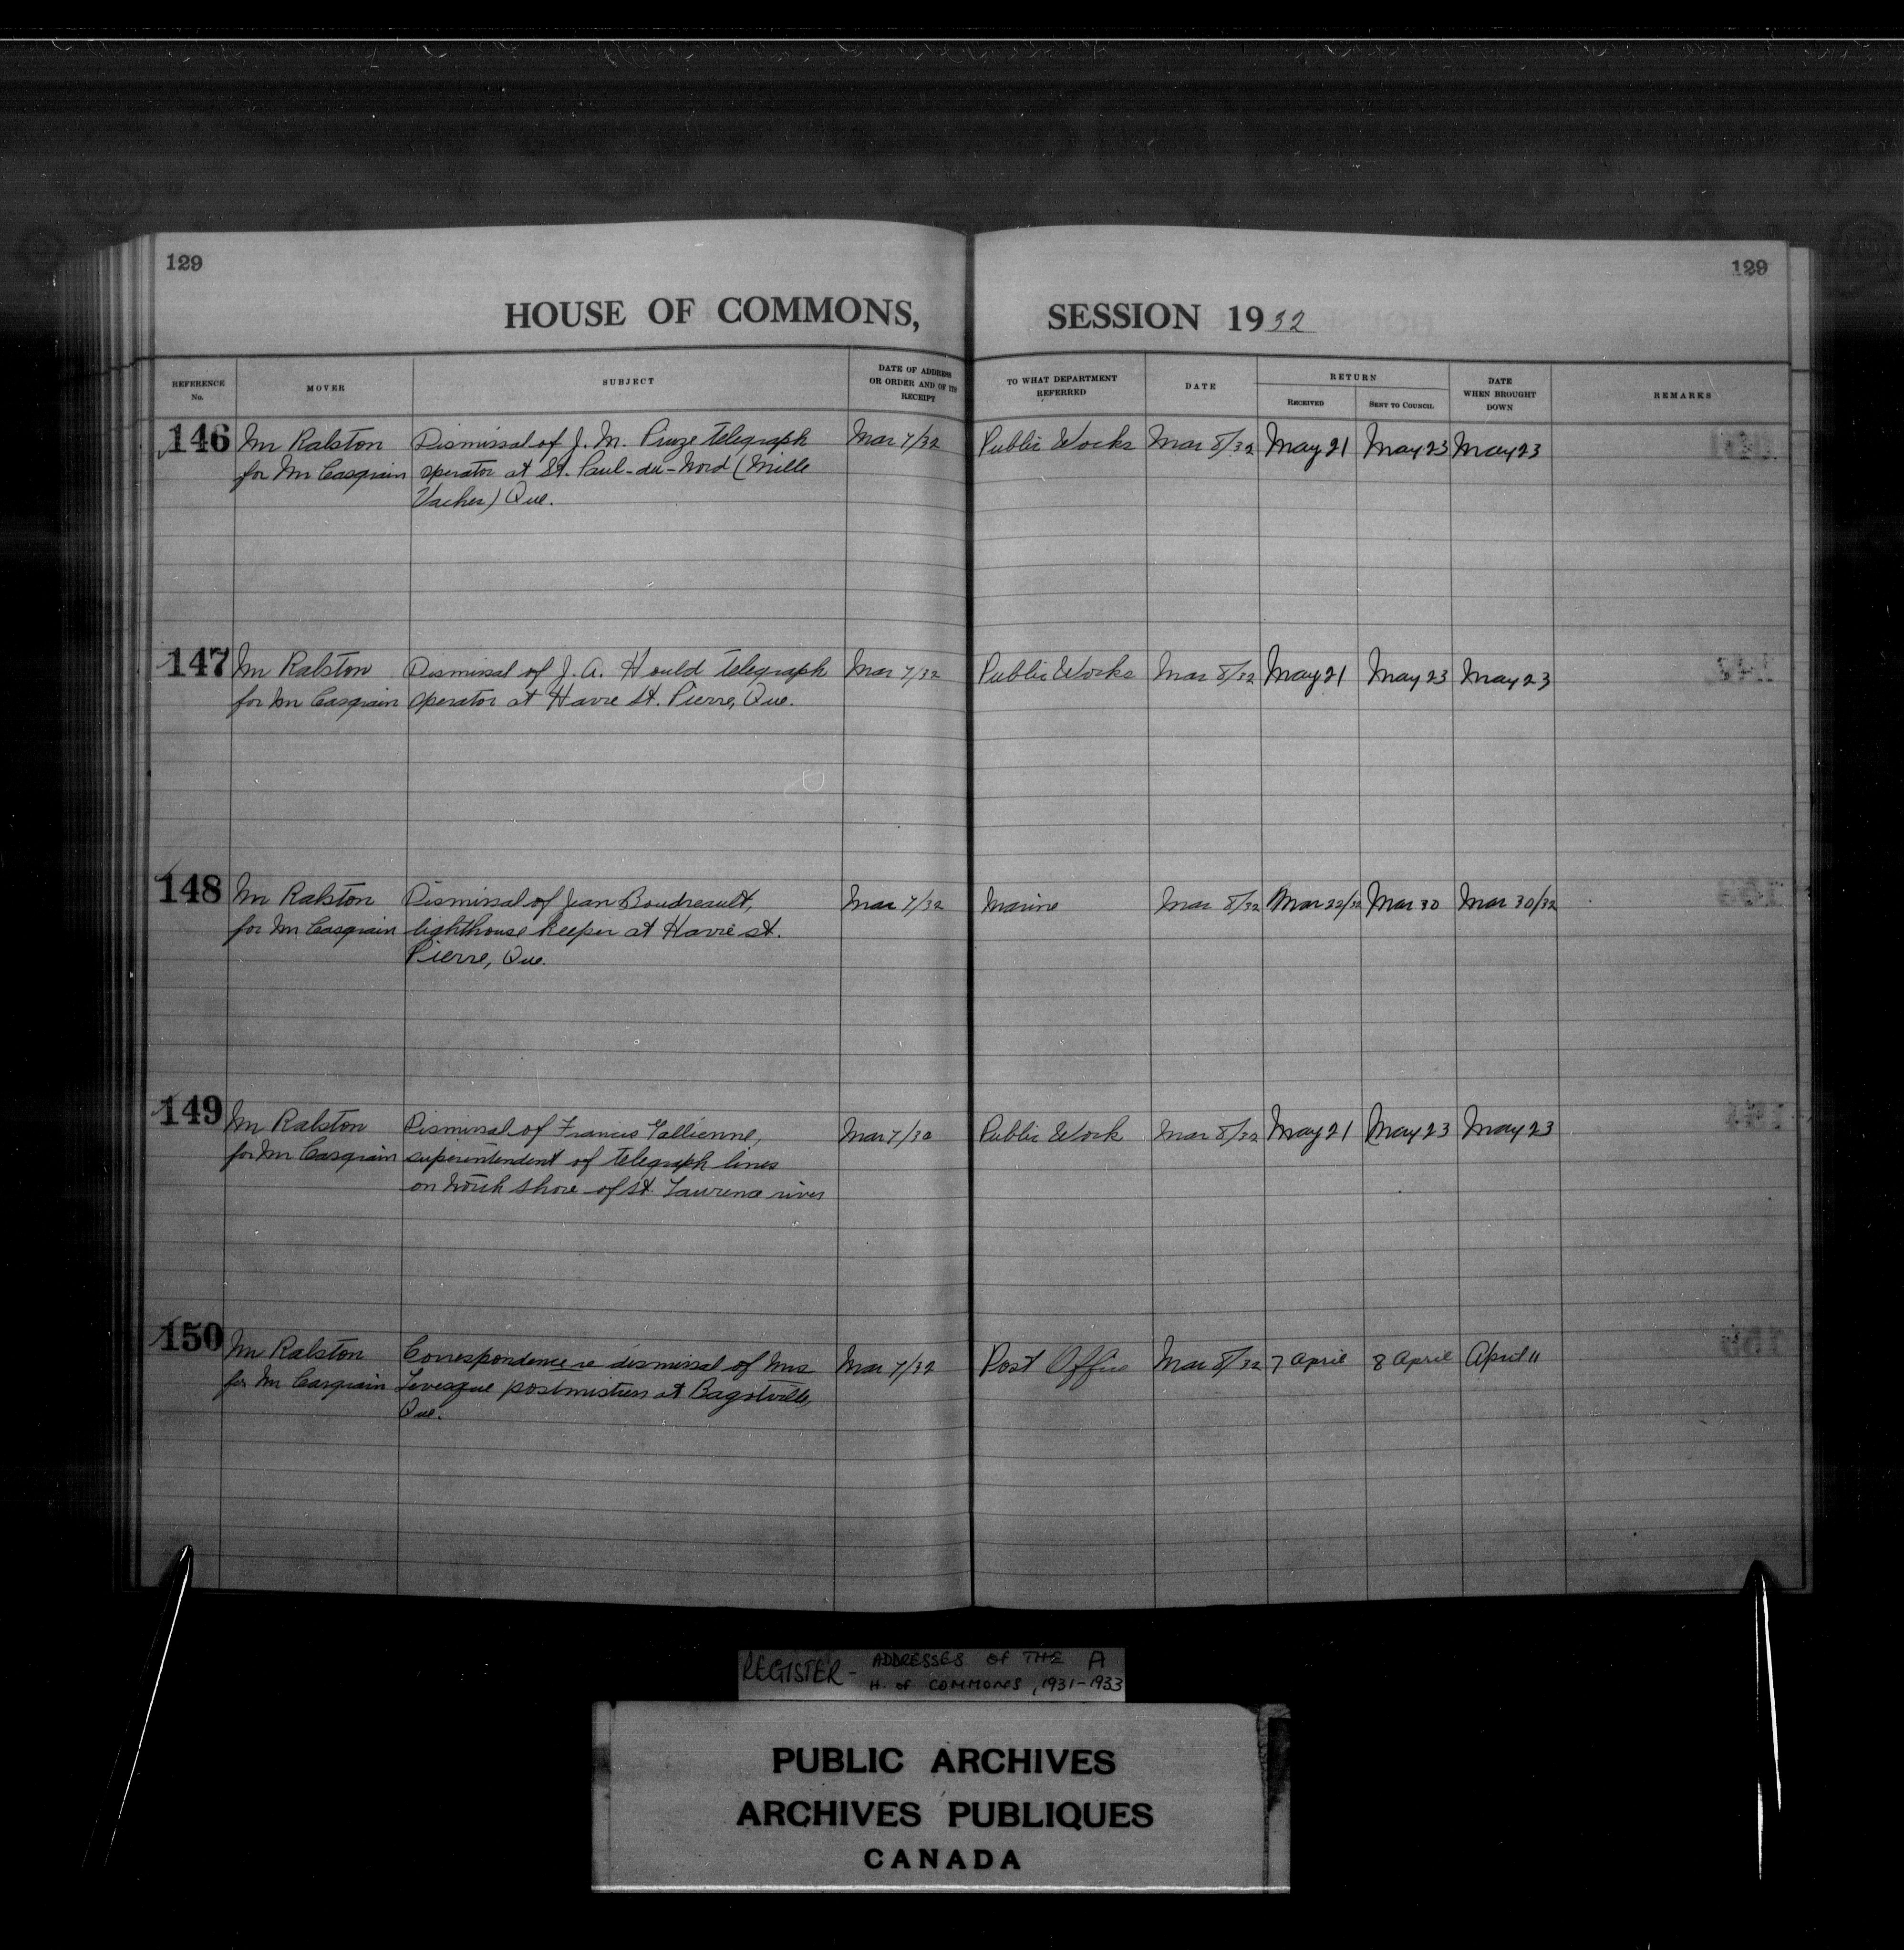 129
129
HOUSE OF COMMONS, SESSION 1932
REFERENCE No.
MOVER
SUBJECT
DATE OF ADDRESS OR ORDER AND OF ITS RECEIPT
TO WHAT DEPARTMENT REFERRED
DATE
RETURN
RECEIVED
SENT TO COUNCIL
DATE WHEN BROUGHT DOWN
REMARKS
146 Mr Ralston Dismissal of J. M. telegraph Mar 7/32 Public Works Mar 8/32 May 21 May 23 May 23
for Mr Casgrain operator at St. Paul-du-Nord (Mille
Vaches) Que.
147 Mr Ralston Dismissal of J. A. Hould telegraph Mar 7/32 Public Works Mar 8/32 May 21 May 23 May 23
for Mr Casgrain operator at Havre St. Pierre, Que.
148 Mr Ralston Dismissal of Jean Boudreault, Mar 7/32 Marine Mar 8/32 Mar 22/32 Mar 30 Mar 30/32
for Mr Casgrain lighthouse keeper at Havre St.
Pierre, Que.
149 Mr Ralston Dismissal of Francis Gallienne, Mar 7/32 Public Work Mar 8/32 May 21 May 23 May 23
for Mr Casgrain superintendent of telegraph lines
on North Shore of St. Lawrence river
150 Mr Ralston Correspondence re dismissal of Mrs Mar 7/32 Post Office Mar 8/32 7 April 8 April April 11
for Mr Casgrain Levesque postmistress at Bagotville,
Que.
REGISTER - ADDRESSES OF THE A
H. of COMMONS, 1931-1933
PUBLIC ARCHIVES
ARCHIVES PUBLIQUES
CANADA